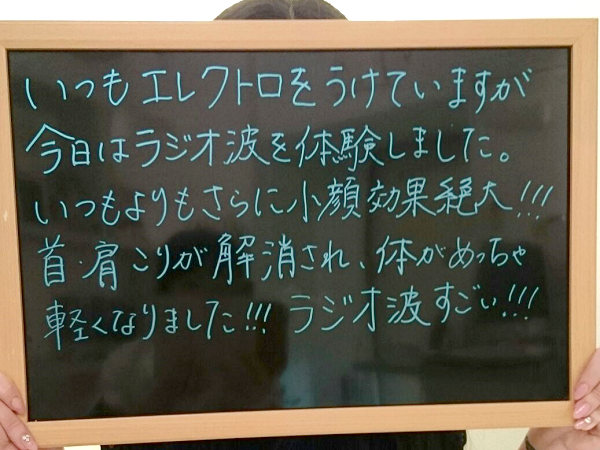 いつもエレクトロをうけていますが
今日はラジオ波を体験しました。
いつもよりもさらに小顔効果絶大!!!
首・肩こりが解消され、体がめっちゃ
軽くなりました!!! ラジオ波すごい!!!